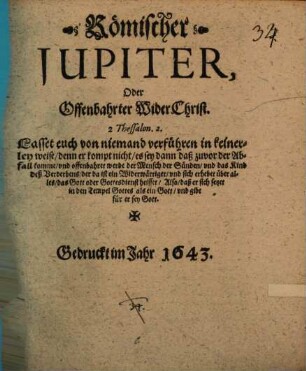 Römischer
JUPITER,
Oder
Offenbahrter WiderChrist.
2 Thessalon. 2.
Lasset euch von niemand verführen in keiner-
ley weise/ denn er kompt nicht/ es sey dann daß zuvor der Ab-
fall komme/ und offenbahrt werde der Mensch der Sünden/ und das Kind
deß Verderbens/ der da ist ein Widerwärtiger/ und sich erhebet über al-
les/ das Gott oder Gottesdienst heisset/ Also/ daß er sich setzet
in den Tempel Gottes als ein Gott/ und gibt
für er sey Gott.
Gedruckt im Jahr 1643.